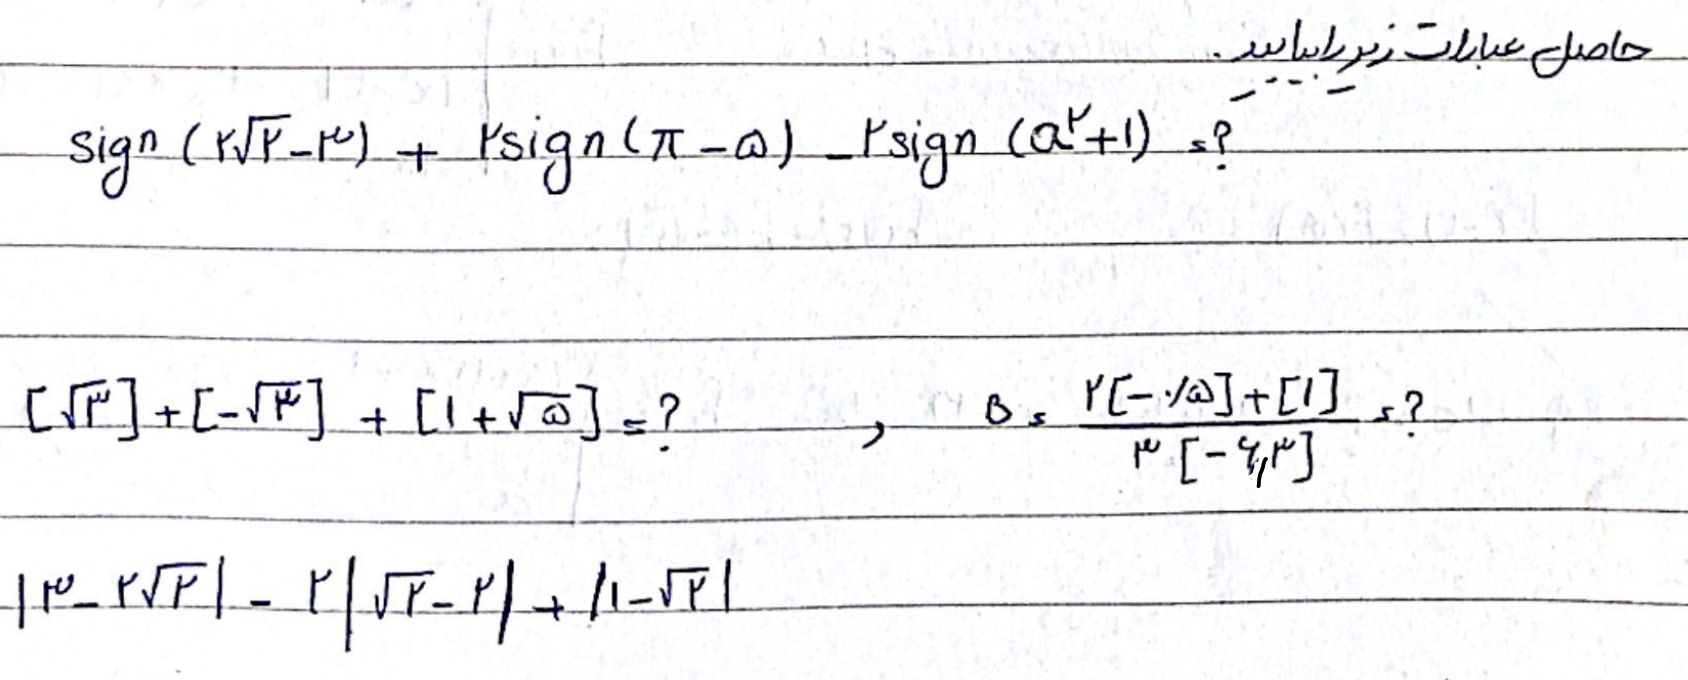 حاصل عبارات زیر را بیابید.
sign (۲√۲-۳) + ۲sign (π-۵) - ۲sign (a۲+۱) =?
[√۳] + [-√۳] + [۱+√۵] =? , B = ۲[-۰/۵]+[۱] / ۳[-۶,۳] =?
|۳-۲√۲| - ۲|√۲-۲| + |۱-√۲|